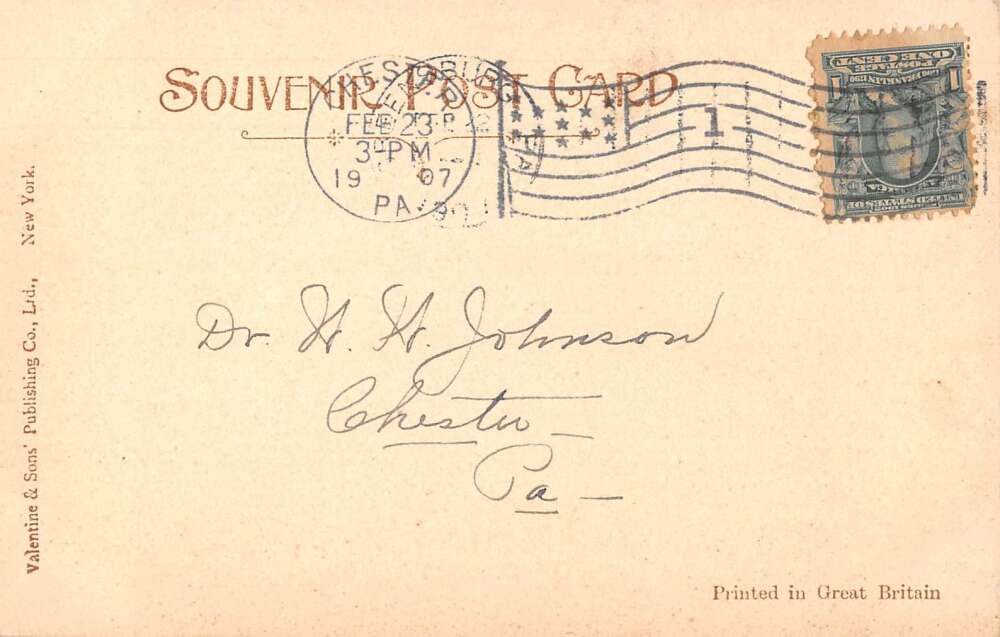 SOUVENIR POST CARD
FEB 23
3-PM
19 07
PA
1
ONE CENT
POSTAGE
1 1
Dr. H. H. Johnson
Chester
Pa
Valentine & Sons' Publishing Co., Ltd., New York.
Printed in Great Britain